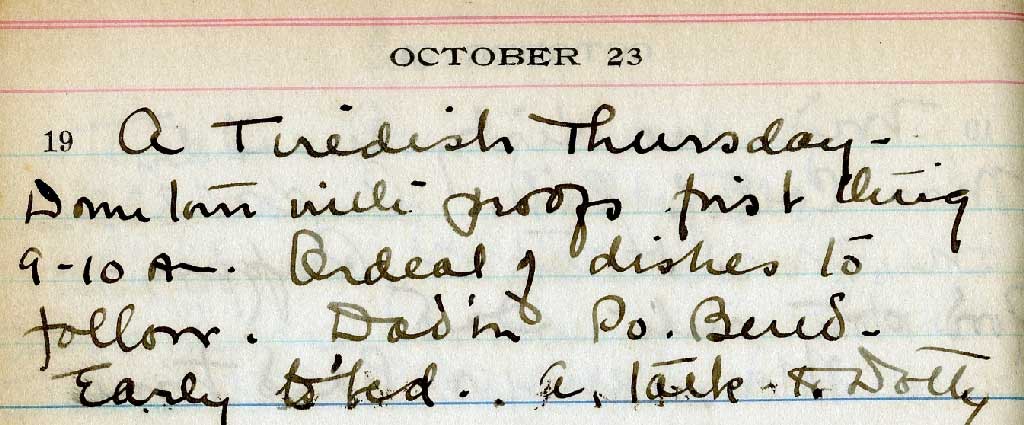 OCTOBER 23
19 A Tiredish Thursday-
Downtown with proofs first thing
9-10 AM. Ordeal of dishes to
follow. Dad in So. Bend-
Early to bed. . A talk to Dotty